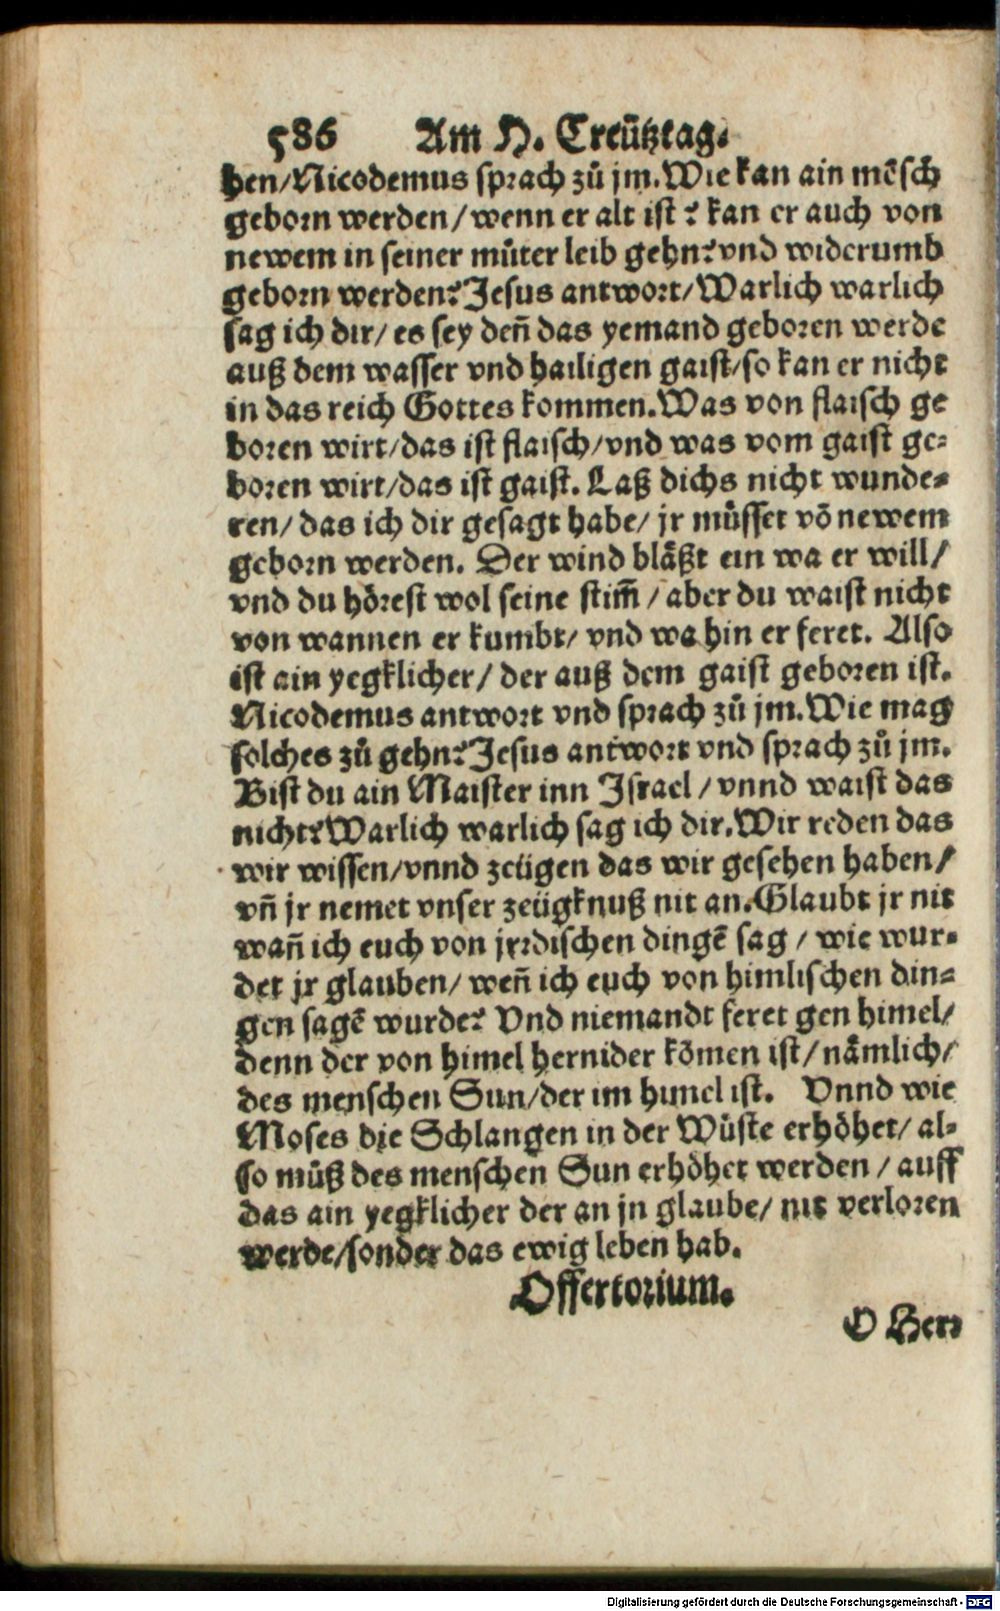 586 Am H. Creütztag.
hen/Nicodemus sprach zů jm. Wie kan ain mẽsch
geborn werden/wenn er alt ist? kan er auch von
newem in seiner můter leib gehn? vnd widerumb
geborn werden? Jesus antwort/Warlich warlich
sag ich dir/ es sey deñ das yemand geboren werde
auß dem wasser vnd hailigen gaist/so kan er nicht
in das reich Gottes kommen. Was von flaisch ge
boren wirt/das ist flaisch/vnd was vom gaist ge-
boren wirt/das ist gaist. Laß dichs nicht wunde-
ren/ das ich dir gesagt habe/ jr müsset võ newem
geborn werden. Der wind bläßt ein wa er will/
vnd du hörest wol seine stim̃ / aber du waist nicht
von wannen er kumbt/ vnd wa hin er feret. Also
ist ain yegklicher/ der auß dem gaist geboren ist.
Nicodemus antwort vnd sprach zů jm. Wie mag
solches zů gehn? Jesus antwort vnd sprach zů jm.
Bist du ain Maister inn Israel / vnnd waist das
nicht? Warlich warlich sag ich dir. Wir reden das
wir wissen/vnnd zeügen das wir gesehen haben/
vñ jr nemet vnser zeügknuß nit an. Glaubt jr nit
wañ ich euch von jrrdischen dingẽ sag / wie wur-
det jr glauben/ weñ ich euch von himlischen din-
gen sagẽ wurde? Vnd niemandt feret gen himel/
denn der von himel hernider kõmen ist/nämlich/
des menschen Sun/der im himel ist. Vnnd wie
Moses die Schlangen in der Wüste erhöhet/ al-
so můß des menschen Sun erhöhet werden / auff
das ain yegklicher der an jn glaube/ nit verloren
werde/sonder das ewig leben hab.
Offertorium.
O Herr
Digitalisierung gefördert durch die Deutsche Forschungsgemeinschaft - DFG